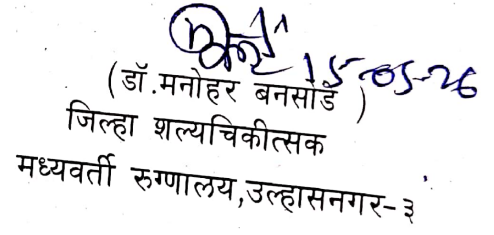 15-05-26
(डॉ.मनोहर बनसोडे )
जिल्हा शल्यचिकीत्सक
मध्यवर्ती रुग्णालय,उल्हासनगर-३